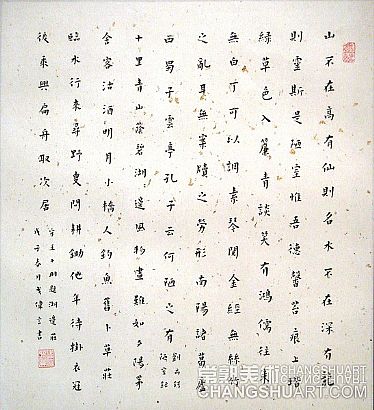 山不在高有仙則名水不在深有龍
則靈斯是陋室惟吾德馨苔痕上階
綠草色入簾青談笑有鴻儒往來
無白丁可以調素琴閱金經無絲竹
之亂耳無案牘之勞形南陽諸葛廬
西蜀子雲亭孔子云何陋之有
劉禹錫
陋室銘
十里青山蔭碧湖邊風物畫難如夕陽茅
舍客沽酒明月小橋人釣魚舊卜草莊
臨水行來尋野叟問耕鋤他年待掛衣冠
後乘興扁舟取次居
宋王十朋題湖邊莊
戊子春月戈偉書
CHANGSHUART
CHANGSHUART.COM